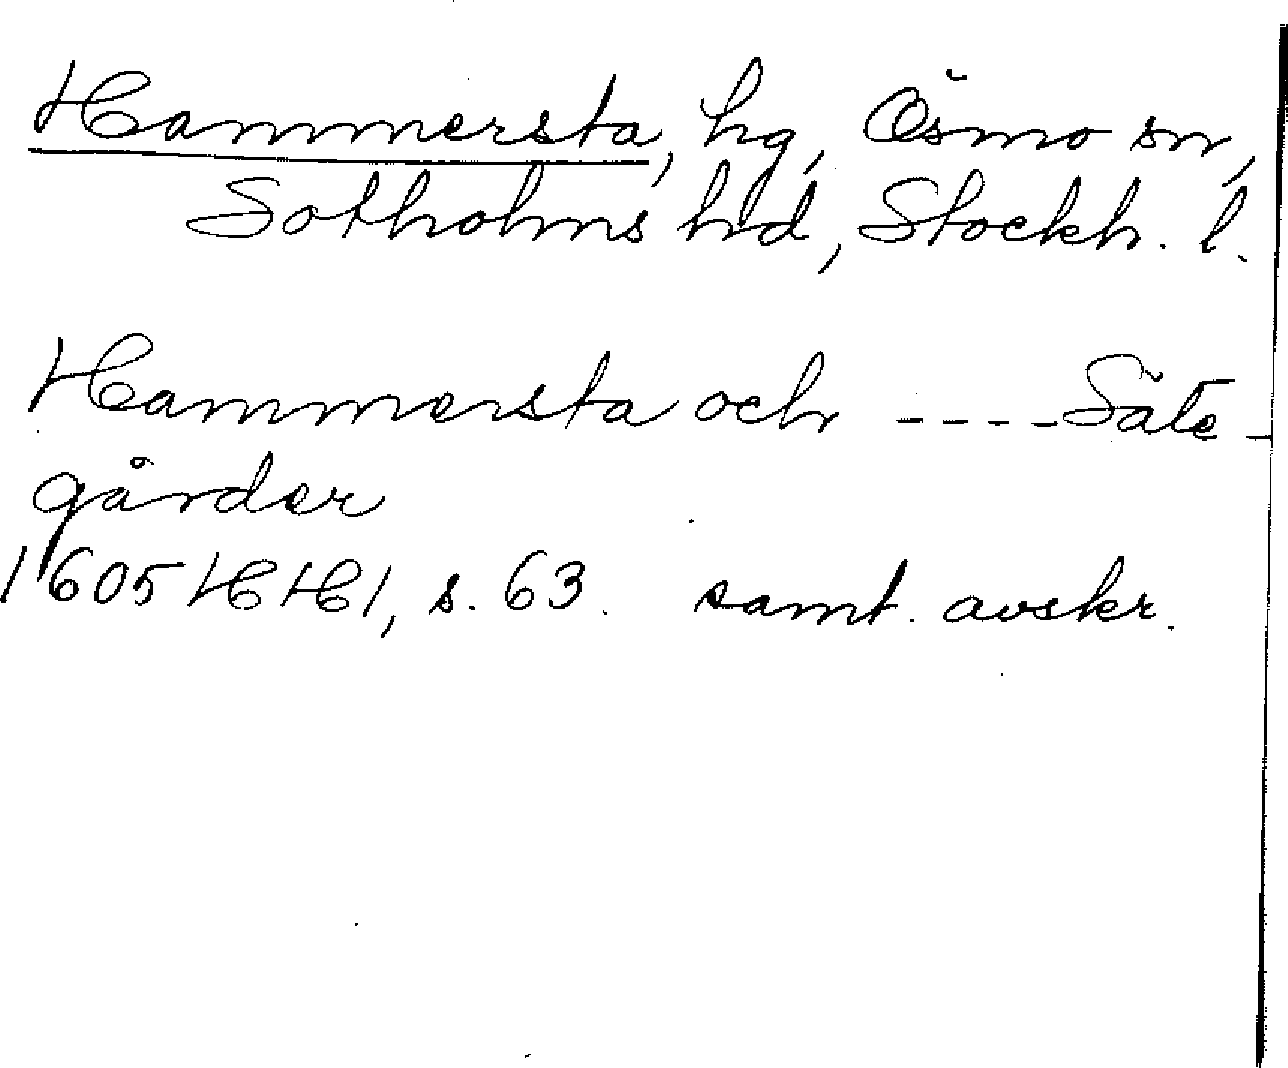 Hammersta, hg, Ösmo sn,
Sotholms hd, Stockh. l.
Hammersta och ---- Säte-
gårder
1605 HH1, s. 63. samt. avskr.